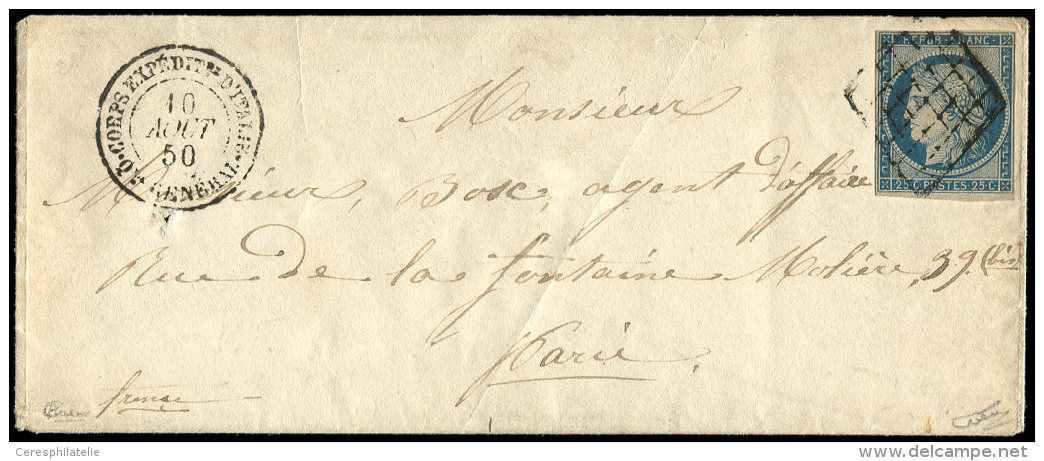 CORPS EXPÉDIT.RE D'ITALIE
10
AOUT
50
Qer GÉNÉRAL
REPUB. FRANC.
25.C. POSTES 25.C
Monsieur
Monsieur, Bosc, agent d'affaire
Rue de la fontaine Molière, 39.(bis)
Paris.
france
Ceresphilatelie
delcampe.net